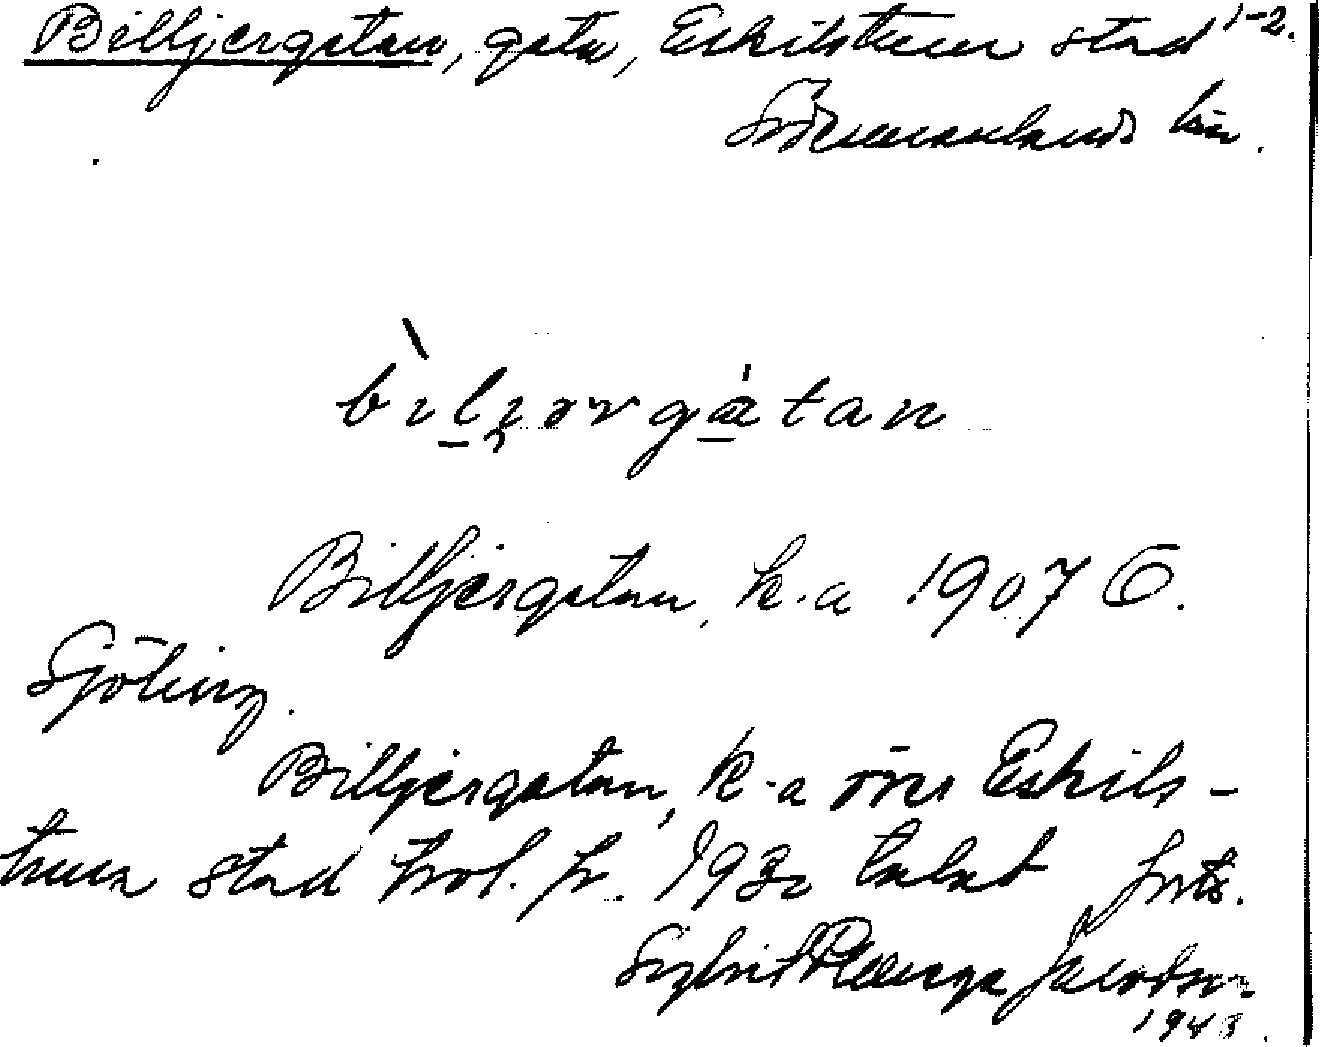 Billjergatan, gata, Eskilstuna stad 1-2.
Södermanlands län.
bìlȷərgátan
Billjergatan, k.a 1907 G.
Sjöberg.
Billjergatan, k-a över Eskils-
tuna stad trol. fr. 1930 talet forts.
Sigbrit Plænge Jacobson
1943.